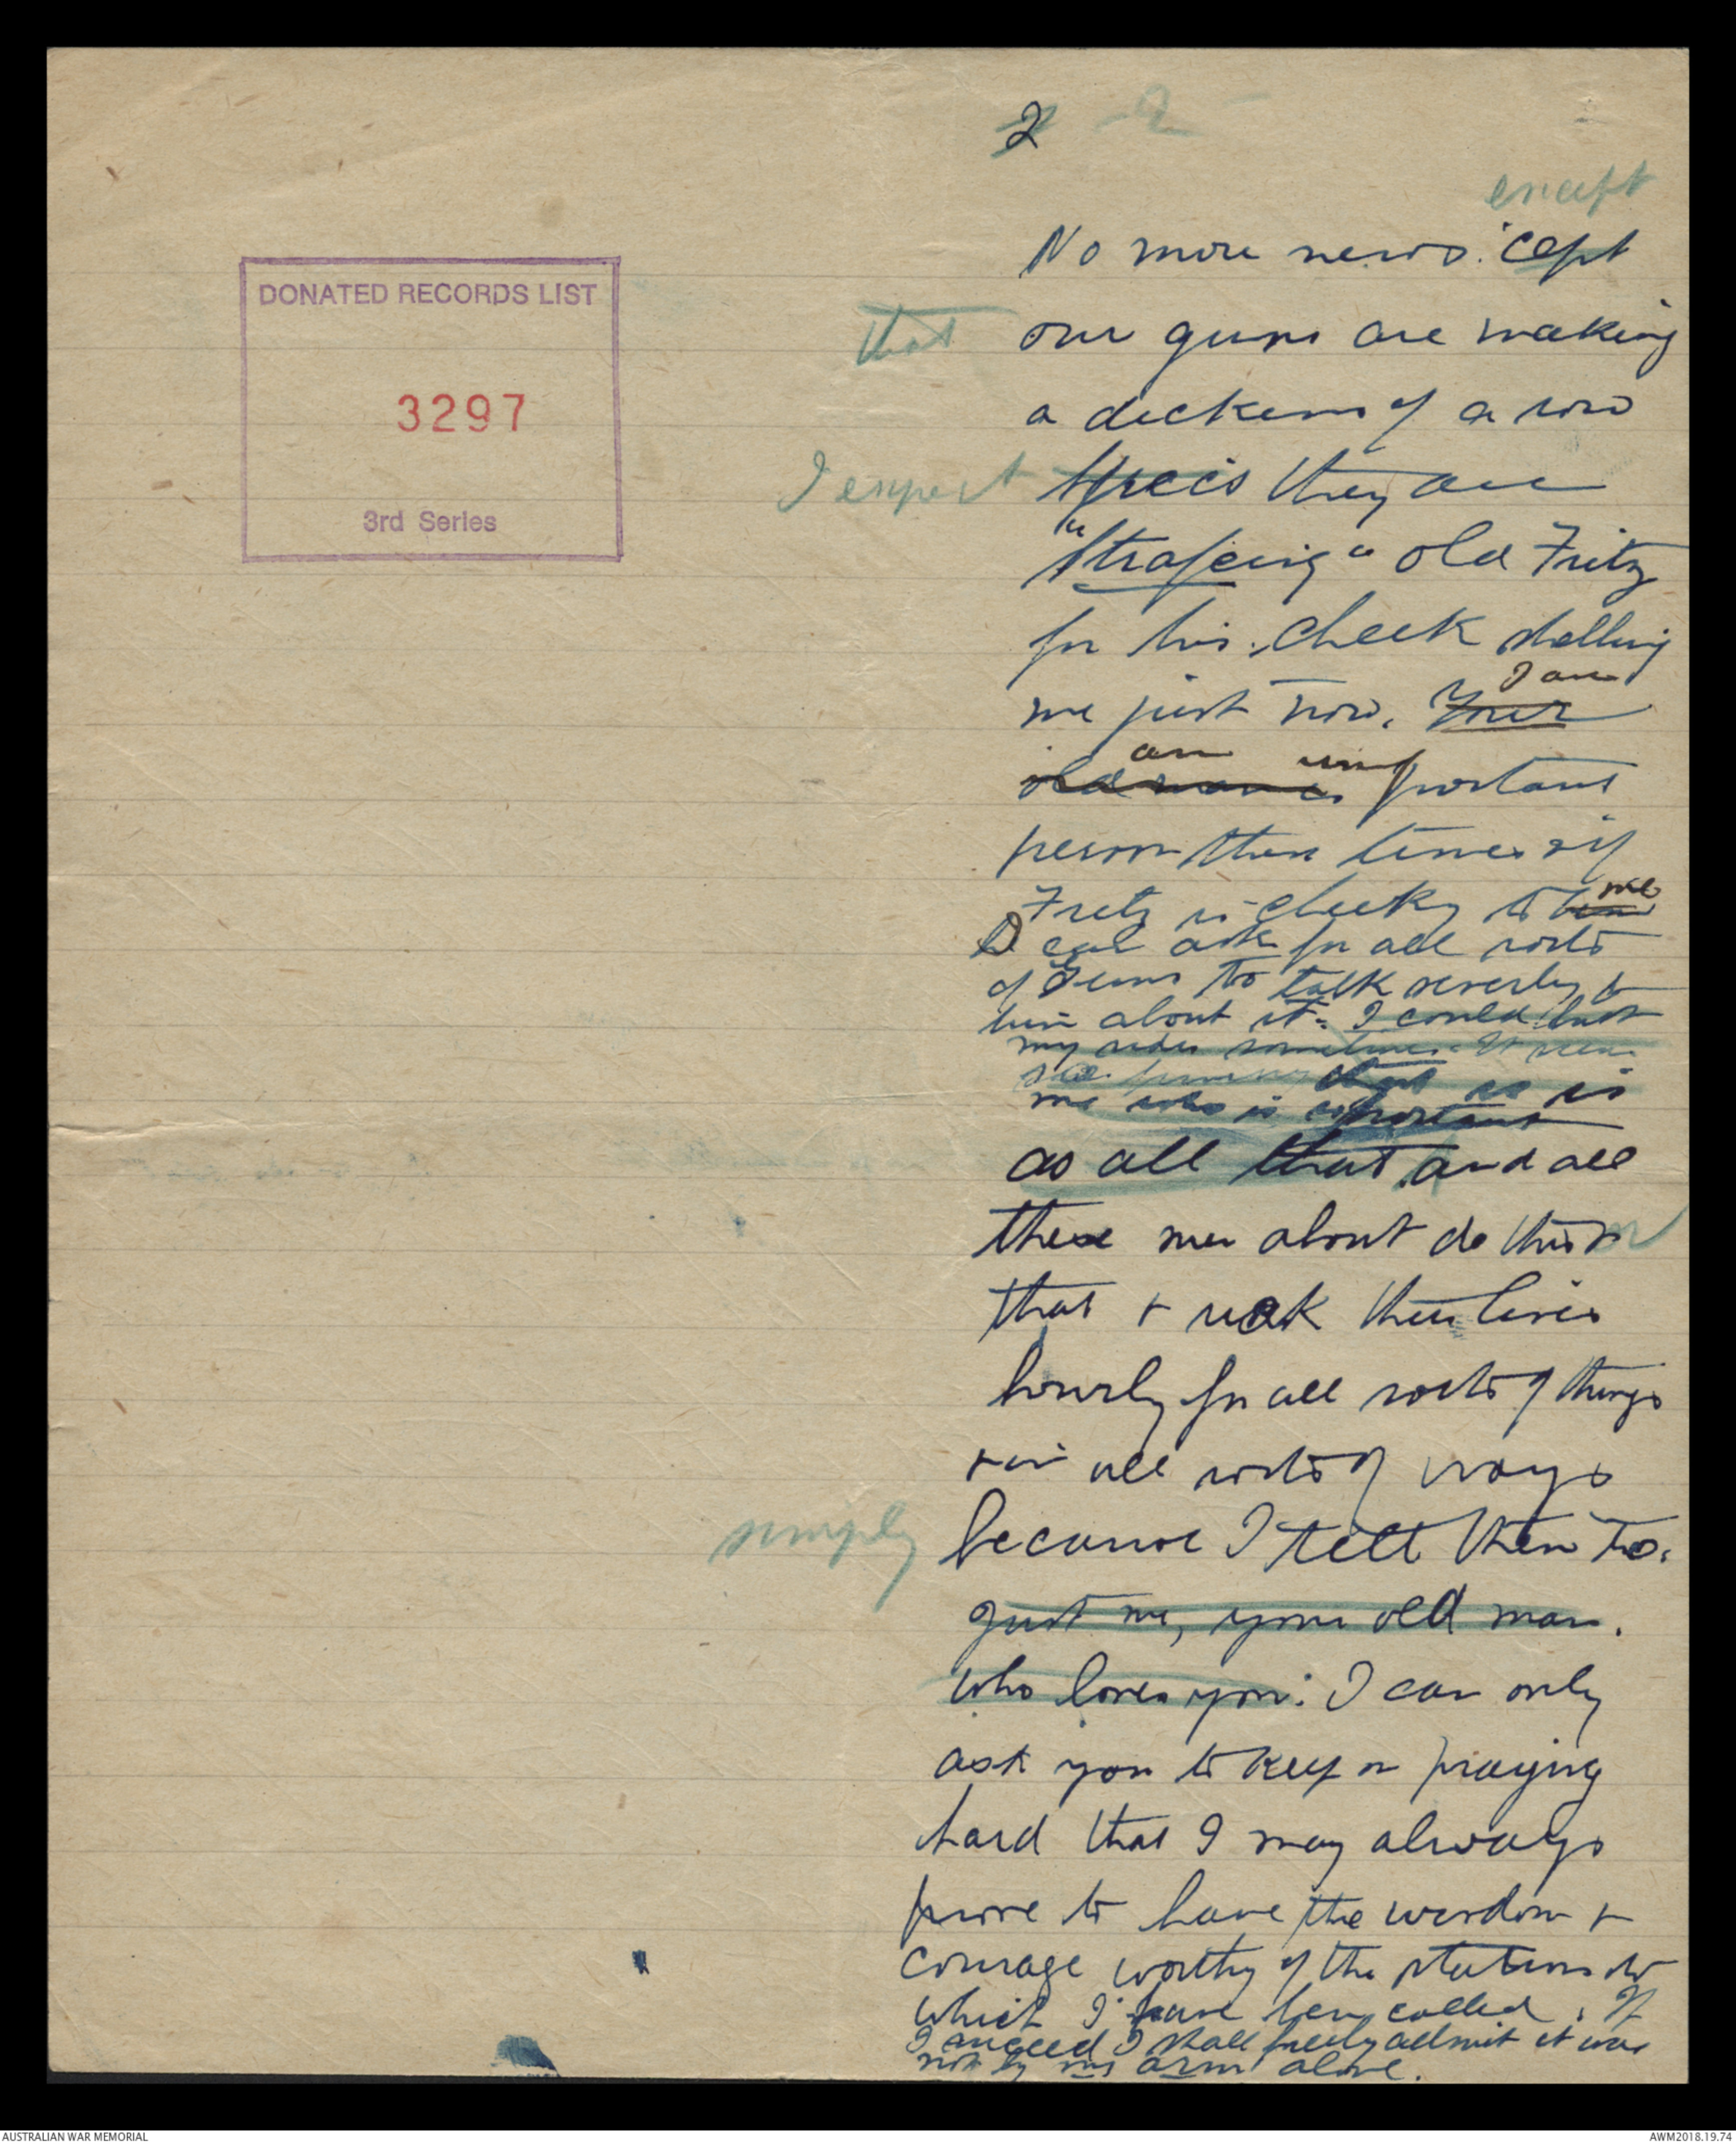 2 - 2 -
except
No more news. 'Cept
that our guns are making
a dickens of a row
I expect Specs they are
"Strafeing" old Fritz
for his cheek shelling
I am
me just now. Your
an im
old man is portant
person these times & if
me
Fritz is cheeky to him
I can ask for all sorts
of Guns to talk severly to
him about it. I could bust
my sides sometimes. It seems
so funny that it is
me who is important
as all that and all
these men about do this or
that & risk their lives
hourly for all sorts of things
& in all sorts of ways
simply because I tell them to.
Just me, your old man.
who loves you. I can only
ask you to keep on praying
hard that I may always
prove to have the wisdom &
courage worthy of the station to
which I have been called. If
I succeed I shall freely admit it was
not by my arm alone.
DONATED RECORDS LIST
3297
3rd Series
AUSTRALIAN WAR MEMORIAL
AWM2018.19.74